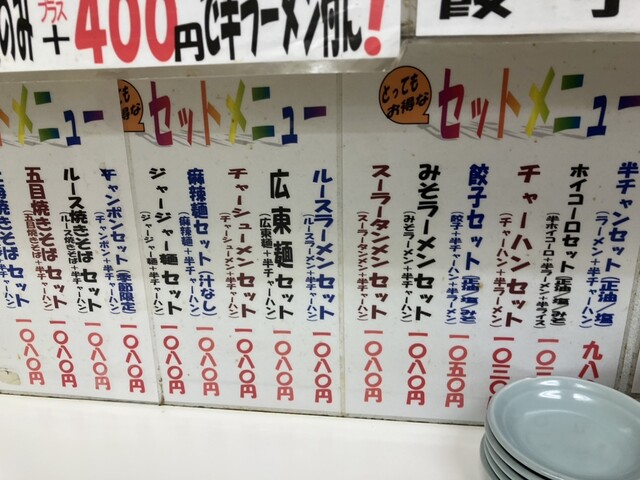 のみ プラス + 400円で半ラーメン付ん!
餃子
とってもお得な
セットメニュー
半チャンセット(正油/塩)
(ラーメン+半チャーハン)
九八
ホイコーローセット(正油/塩/みそ)
(半ホイコーロー+半ラーメン+半ライス)
一〇三
チャーハンセット
(チャーハン+半ラーメン)
一〇三〇円
餃子セット(正油/塩/みそ)
(餃子+半チャーハン+半ラーメン)
一〇五〇円
みそラーメンセット
(みそラーメン+半チャーハン)
一〇八〇円
スーラータンメンセット
(スーラータンメン+半チャーハン)
一〇八〇円
でも
得な
セットメニュー
ルースラーメンセット
(ルースラーメン+半チャーハン)
一〇八〇円
広東麺セット
(広東麺+半チャーハン)
一〇八〇円
チャーシューメンセット
(チャーシューメン+半チャーハン)
一〇八〇円
麻辣麺セット(汁なし)
(麻辣麺+半チャーハン)
一〇八〇円
ジャージャー麺セット
(ジャージャー麺+半チャーハン)
一〇八〇円
トメニュー
チャンポンセット(季節限定)
(チャンポン+半チャーハン)
一〇八〇円
ルース焼きそばセット
(ルース焼きそば+半チャーハン)
一〇八〇円
五目焼きそばセット
(五目焼きそば+半チャーハン)
一〇八〇円
焼きそばセット
焼きそば+半チャーハン)
〇八〇円